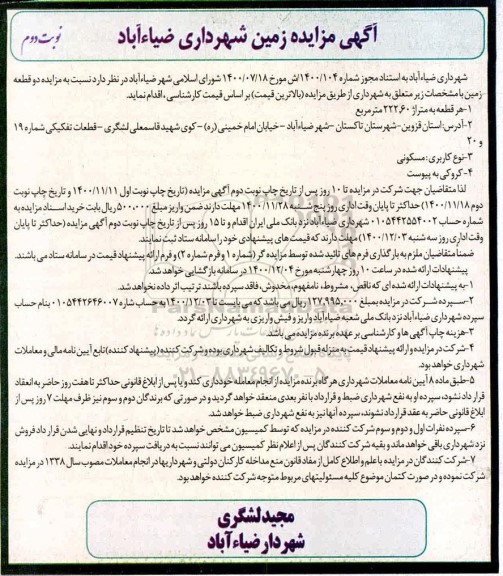 آگهی مزایده زمین شهرداری ضیاءآباد
نوبت دوم
شهرداری ضیاءآباد به استناد مجوز شماره ۱۴۰۰/۱۰۴/ش مورخ ۱۴۰۰/۰۷/۱۸ شورای اسلامی شهر ضیاءآباد در نظر دارد نسبت به مزایده دو قطعه
زمین با مشخصات زیر متعلق به شهرداری از طریق مزایده (بالاترین قیمت) بر اساس قیمت کارشناسی، اقدام نماید.
۱-هر قطعه به متراژ ۲۲۲,۶۰ مترمربع
۲-آدرس: استان قزوین-شهرستان تاکستان -شهر ضیاءآباد -خیابان امام خمینی (ره) -کوی شهید قاسمعلی لشگری -قطعات تفکیکی شماره ۱۹
و ۲۰
۳-نوع کاربری: مسکونی
۴-کروکی به پیوست
لذا متقاضیان جهت شرکت در مزایده تا ۱۰ روز پس از تاریخ چاپ نوبت دوم آگهی مزایده (تاریخ چاپ نوبت اول ۱۴۰۰/۱۱/۱۱ و تاریخ چاپ نوبت
دوم ۱۴۰۰/۱۱/۱۸) حداکثر تا پایان وقت اداری روز پنج شنبه ۱۴۰۰/۱۱/۲۸ مهلت دارند ضمن واریز مبلغ ۵۰۰,۰۰۰ ریال بابت خرید اسناد مزایده به
شماره حساب ۰۱۰۵۴۴۲۵۵۴۰۰۲ شهرداری ضیاءآباد نزد بانک ملی ایران اقدام و تا ۱۵ روز پس از تاریخ چاپ نوبت دوم آگهی مزایده (حداکثر تا پایان
وقت اداری روز سه شنبه ۱۴۰۰/۱۲/۰۳) مهلت دارند که قیمت های پیشنهادی خود را سامانه ستاد ثبت نمایند.
ضمنا متقاضیان ملزم به بارگذاری فرم های تائید شده توسط مزایده گر (شماره ۱ و فرم شماره ۲) و فرم ارائه پیشنهاد قیمت در سامانه ستاد می باشند.
پیشنهادات ارائه شده در ساعت ۱۰ روز چهارشنبه مورخ ۱۴۰۰/۱۲/۰۴ در سامانه بازگشایی خواهد شد.
۱-به پیشنهادات ارائه شده ای که ناقص، مشروط، نامفهوم، مخدوش، فاقد سپرده باشند ترتیب اثر داده نخواهد شد.
۲-سپرده شرکت در مزایده بمبلغ ۱۲۷,۹۹۵,۰۰۰ ریال می باشد که می بایست تا ۱۴۰۰/۱۲/۰۳ به حساب شماره ۰۱۰۵۴۴۲۶۴۶۰۰۷ بنام حساب
سپرده شهرداری ضیاءآباد نزد بانک ملی شعبه ضیاءآباد واریز و فیش واریزی به شهرداری ارائه گردد.
۳-هزینه چاپ آگهی ها و کارشناسی بر عهده برنده مزایده می باشد.
۴-شرکت در مزایده و ارائه پیشنهاد قیمت به منزله قبول شروط و تکالیف شهرداری بوده و شرکت کننده (پیشنهاد کننده) تابع آیین نامه مالی و معاملات
شهرداری خواهد بود.
۵-طبق ماده ۸ آیین نامه معاملات شهرداری هر گاه برنده مزایده از انجام معامله خودداری کند و یا پس از ابلاغ قانونی حداکثر تا هفت روز حاضر به انعقاد
قرار داد نشود، سپرده او به نفع شهرداری ضبط و قرارداد با نفر بعدی منعقد خواهد گردید و در صورتی که برندگان دوم و سوم نیز ظرف مهلت ۷ روز پس از
ابلاغ قانونی حاضر به عقد قرارداد نشوند، سپرده آنها نیز به نفع شهرداری ضبط خواهد شد.
۶-سپرده نفرات اول و دوم و سوم شرکت کننده در مزایده که توسط کمیسیون مشخص خواهد شد تا تاریخ تنظیم قرارداد و نهایی شدن قرار داد فروش
نزد شهرداری باقی خواهد ماند و بقیه شرکت کنندگان پس از اعلام نظر کمیسیون می توانند نسبت به دریافت سپرده خود اقدام نمایند.
۷-شرکت کنندگان در مزایده با علم و اطلاع کامل از مفاد قانون منع مداخله کارکنان دولتی و شهرداریها در انجام معاملات مصوب سال ۱۳۳۸ در مزایده
شرکت نموده و در صورت کتمان موضوع کلیه مسئولیتهای مربوط متوجه شرکت کننده خواهد بود.
مجید لشگری
شهردار ضیاءآباد
۰۲۱-۸۸۳۴۹۶۷۰-۵